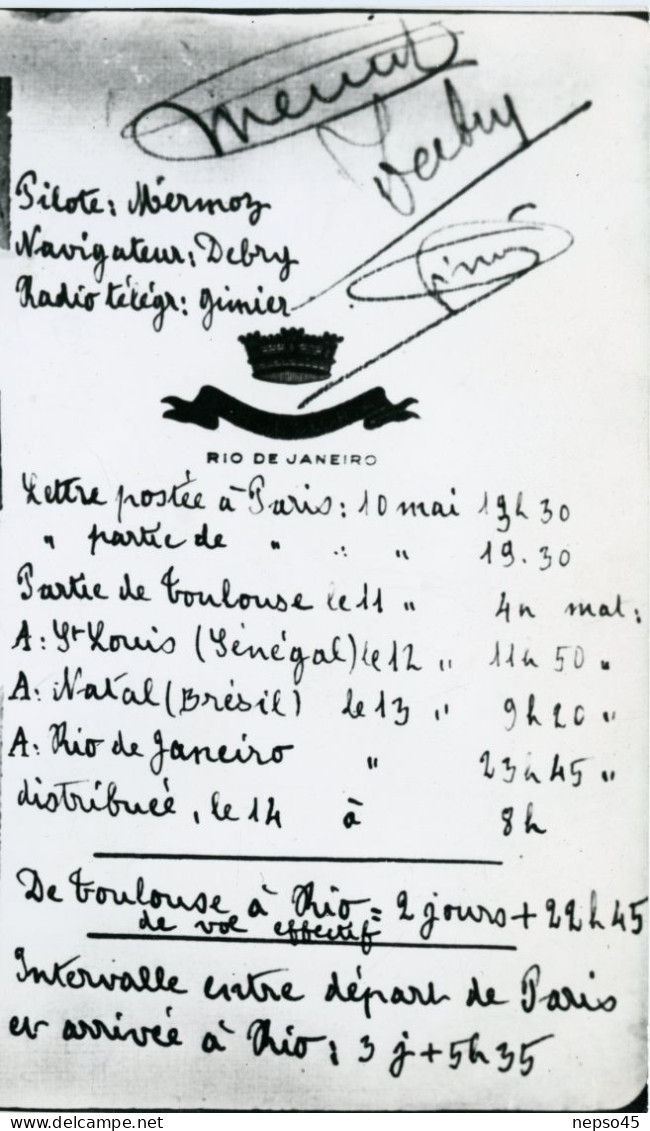 Mermoz
Debry
Pilote: Mermoz
Navigateur: Debry
Radio télégr: Gimier
Gimié
RIO DE JANEIRO
Lettre postée à Paris: 10 mai 19h 30
" partie de " " " 19.30
Partie de Toulouse le 11 " 4h mat:
A: St Louis (Sénégal) le 12 " 11h 50 "
A: Natal (Brésil) le 13 " 9h20 "
A: Rio de Janeiro " 23h45 "
distribuée, le 14 à 8h
De Toulouse à Rio = 2 jours + 22h45
de vol effectif
Intervalle entre départ de Paris
et arrivée à Rio: 3 j + 5h 35
www.delcampe.net
nepso45